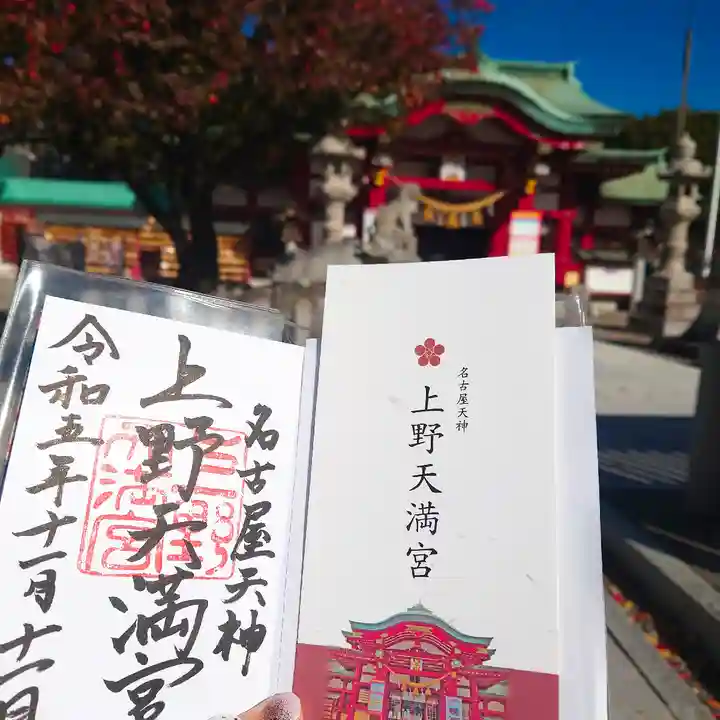 名古屋天神
上野天満宮
令和五年十一月十一日
上野天満宮
名古屋天神
上野天満宮